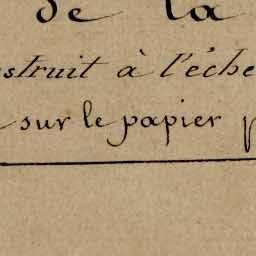 de la
struit à l'éche
sur le papier